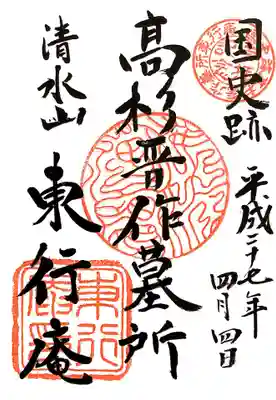 国史跡
平成二十七年
四月四日
高杉晋作墓所
清水山
東行庵